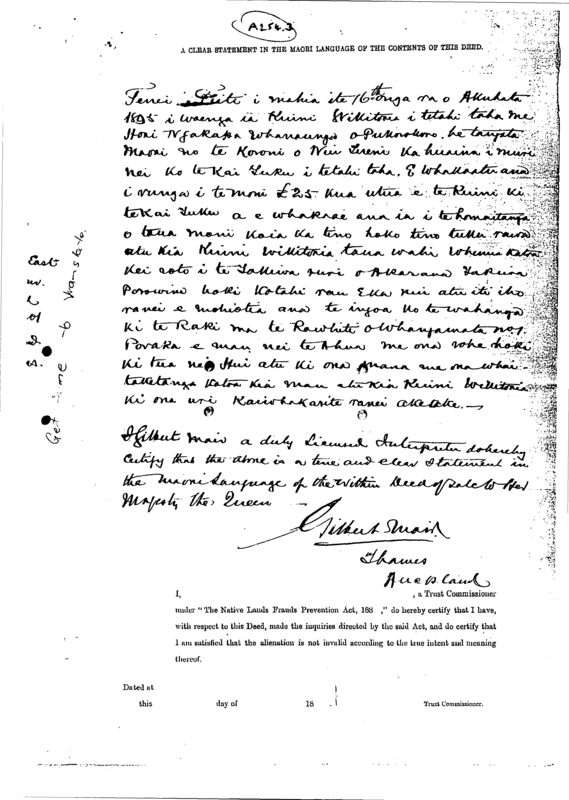 A254.3
A CLEAR STATEMENT IN THE MAORI LANGUAGE OF THE CONTENTS OF THIS DEED.
Tenei i mahia i te 16th o nga ra o Akuhata
1895 i waenga ia Kuini Wikitoria i tetahi taha me
Hori Ngakapa Whanaunga o Pukorokoro he tangata
Maori no te Koroni o Niu Tireni Ka huaina i muri
nei Ko te Kai Tuku i tetahi taha. E Whakaatu ana
i runga i te moni £25 Kua utua e te Kuini Ki
te Kai Tuku a e whakaae ana ia i te homaitanga
o taua moni Koia Ka tino hoko tino tuku rawa
atu Kia Kuini Wikitoria taua wahi Whenua Katoa
Kei roto i te Takiwa o Akarana
Porowini hoki Kotahi rau Eka nui atu iti iho
ranei e mohiotia ana te ingoa Ko te wahanga
Ki te Raki ma te Rawhiti o Whangamata No 1
Poraka e mau nei te Ahua me ona rohe hoki
Ki tua nei Hui atu Ki ona me ona whai-
taketanga Katoa Kia mau atu Kia Kuini Wikitoria
Ki ona uri Kaiwhakarite ranei ake ake.
I Gilbert Mair a duly Licensed Interpreter do hereby
Certify that the above is a true and clear Statement in
the Maori Language of the within Deed of Sale to Her
Majesty the Queen
Gilbert Mair
Thames
Auckland
I, , a Trust Commissioner
under "The Native Lands Frauds Prevention Act, 188 ," do hereby certify that I have,
with respect to this Deed, made the inquiries directed by the said Act, and do certify that
I am satisfied that the alienation is not invalid according to the true intent and meaning
thereof.
Dated at
this day of 18 . Trust Commissioner.
East